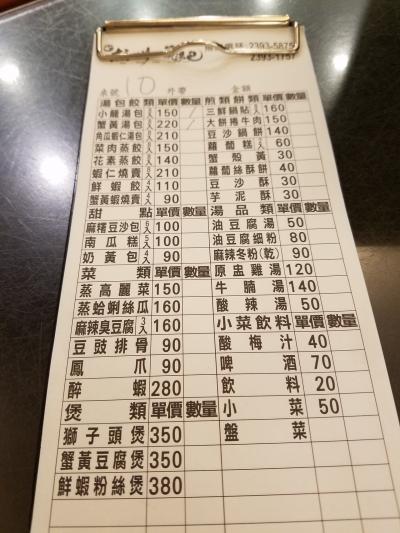 2393-5875
2393-1757
桌號 10 外帶 金額
湯包餃類 單價 數量 煎類餅類 單價 數量
小籠湯包 150 三鮮鍋貼 160
蟹黃湯包 220 大餅捲牛肉 150
角瓜蝦仁湯包 210 豆沙鍋餅 140
菜肉蒸餃 150 蘿蔔糕 60
花素蒸餃 140 蟹殼黃 30
蝦仁燒賣 210 蘿蔔絲酥餅 40
鮮蝦餃 110 豆沙酥 30
蟹黃蝦燒賣 90 芋泥酥 30
甜點 單價 數量 湯品類 單價 數量
麻糬豆沙包 100 油豆腐湯 50
南瓜糕 100 油豆腐細粉 80
奶黃包 90 麻辣冬粉(乾) 90
菜類 單價 數量 原盅雞湯 120
蒸高麗菜 150 牛腩湯 140
蒸蛤蜊絲瓜 160 酸辣湯 50
麻辣臭豆腐 160 小菜飲料 單價 數量
豆豉排骨 90 酸梅汁 40
鳳爪 90 啤酒 70
醉蝦 280 飲料 20
煲類 單價 數量 小菜 50
獅子頭煲 350 盤菜
蟹黃豆腐煲 350
鮮蝦粉絲煲 380